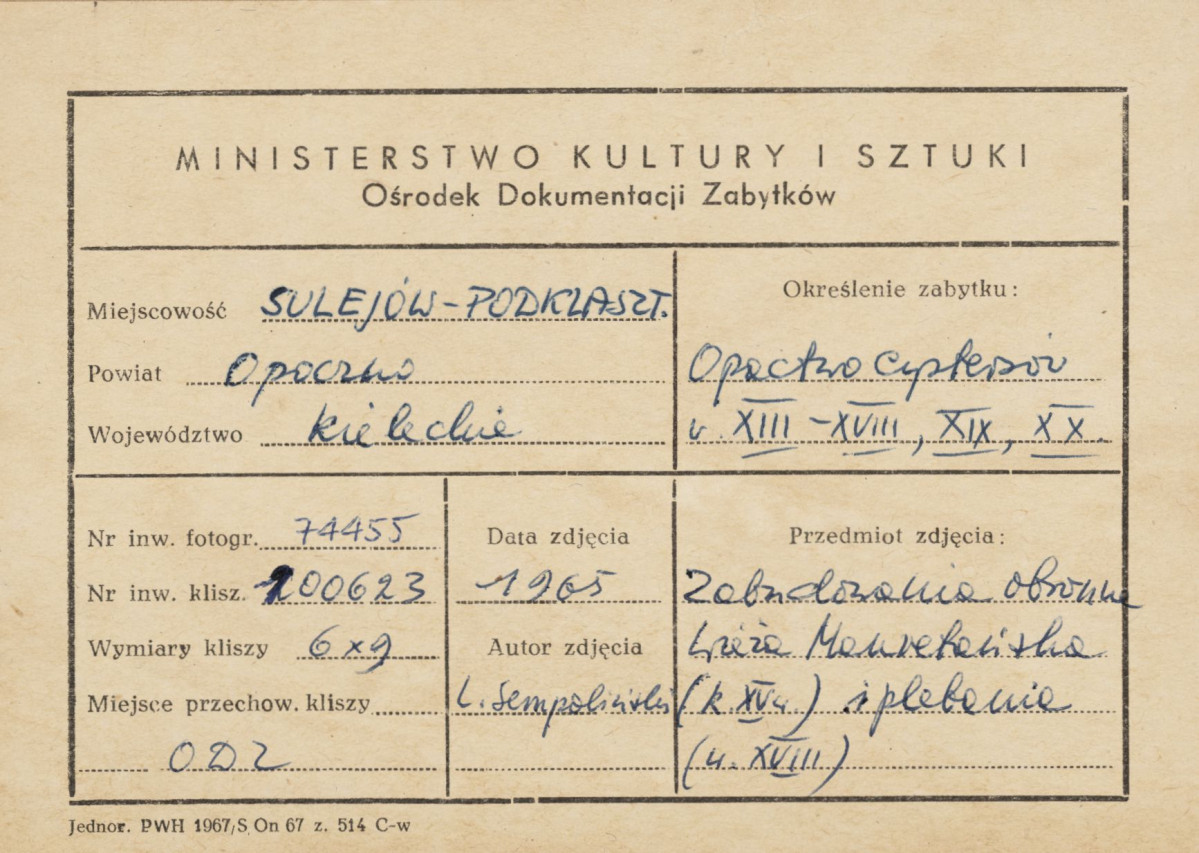 MINISTERSTWO KULTURY I SZTUKI
Ośrodek Dokumentacji Zabytków
Miejscowość SULEJÓW-PODKLASZT.
Powiat Opoczno
Województwo kieleckie
Określenie zabytku:
Opactwo Cystersów
w. XIII-XVIII, XIX, XX.
Nr inw. fotogr. 74455
Nr inw. klisz. 100623
Wymiary kliszy 6x9
Miejsce przechow. kliszy
ODZ
Data zdjęcia
1965
Autor zdjęcia
L. Sempoliński
Przedmiot zdjęcia:
Zabudowania obronne
Wieża Mauretańska
(k. XV w) i plebania
(w. XVIII)
Jednor. PWH 1967/S On 67 z. 514 C-w